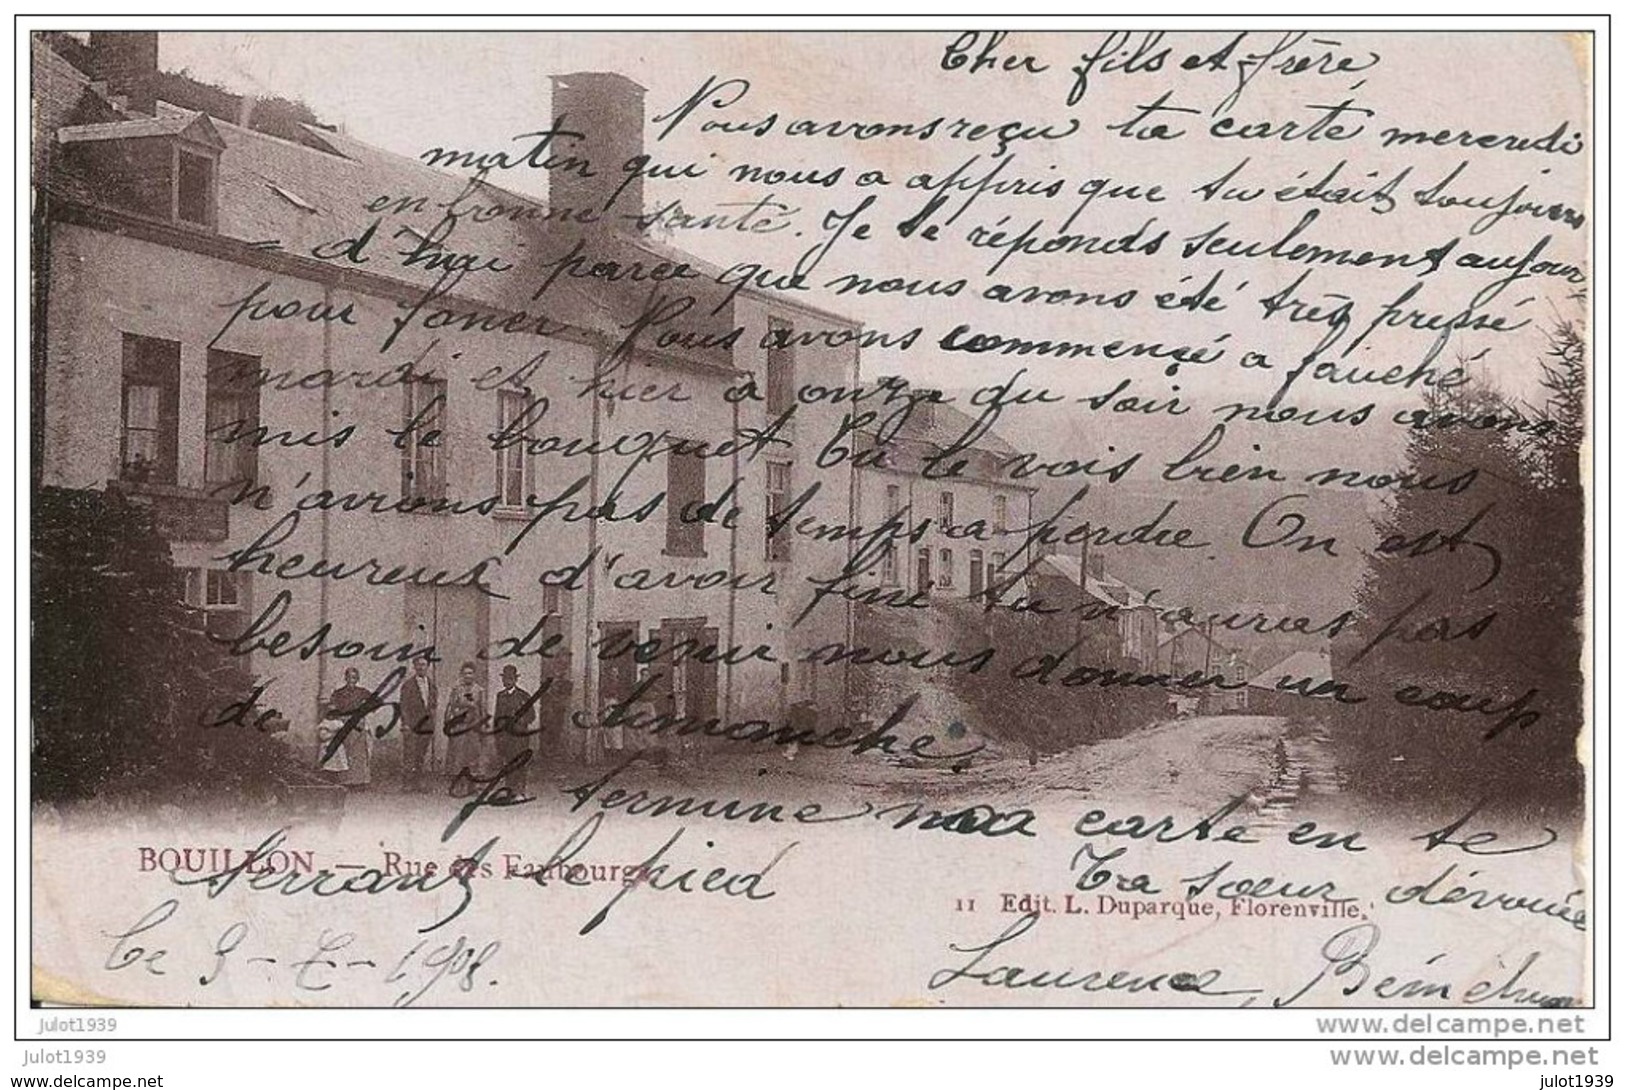 Cher fils et frère
Nous avons reçu ta carte mercredi
matin qui nous a appris que tu était toujours
en bonne santé. Je te réponds seulement aujour
= d'hui parce que nous avons été très pressé
pour faner Nous avons commençé a fauché
mardi et hier à onze du soir nous avons
mis le bouquet Tu le vois bien nous
n'avions pas de temps a perdre. On est
heureux d'avoir fini tu n'auras pas
besoin de venir nous donner un coup
de pied dimanche.
Je termine ma carte en te
serrant le pied
Ta sœur dévouée
Laurence,
Le 9-7-1908.
BOUILLON. — Rue des Faubourgs
11 Edit. L. Duparque, Florenville.
julot1939
www.delcampe.net
julot1939
www.delcampe.net
www.delcampe.net
julot1939